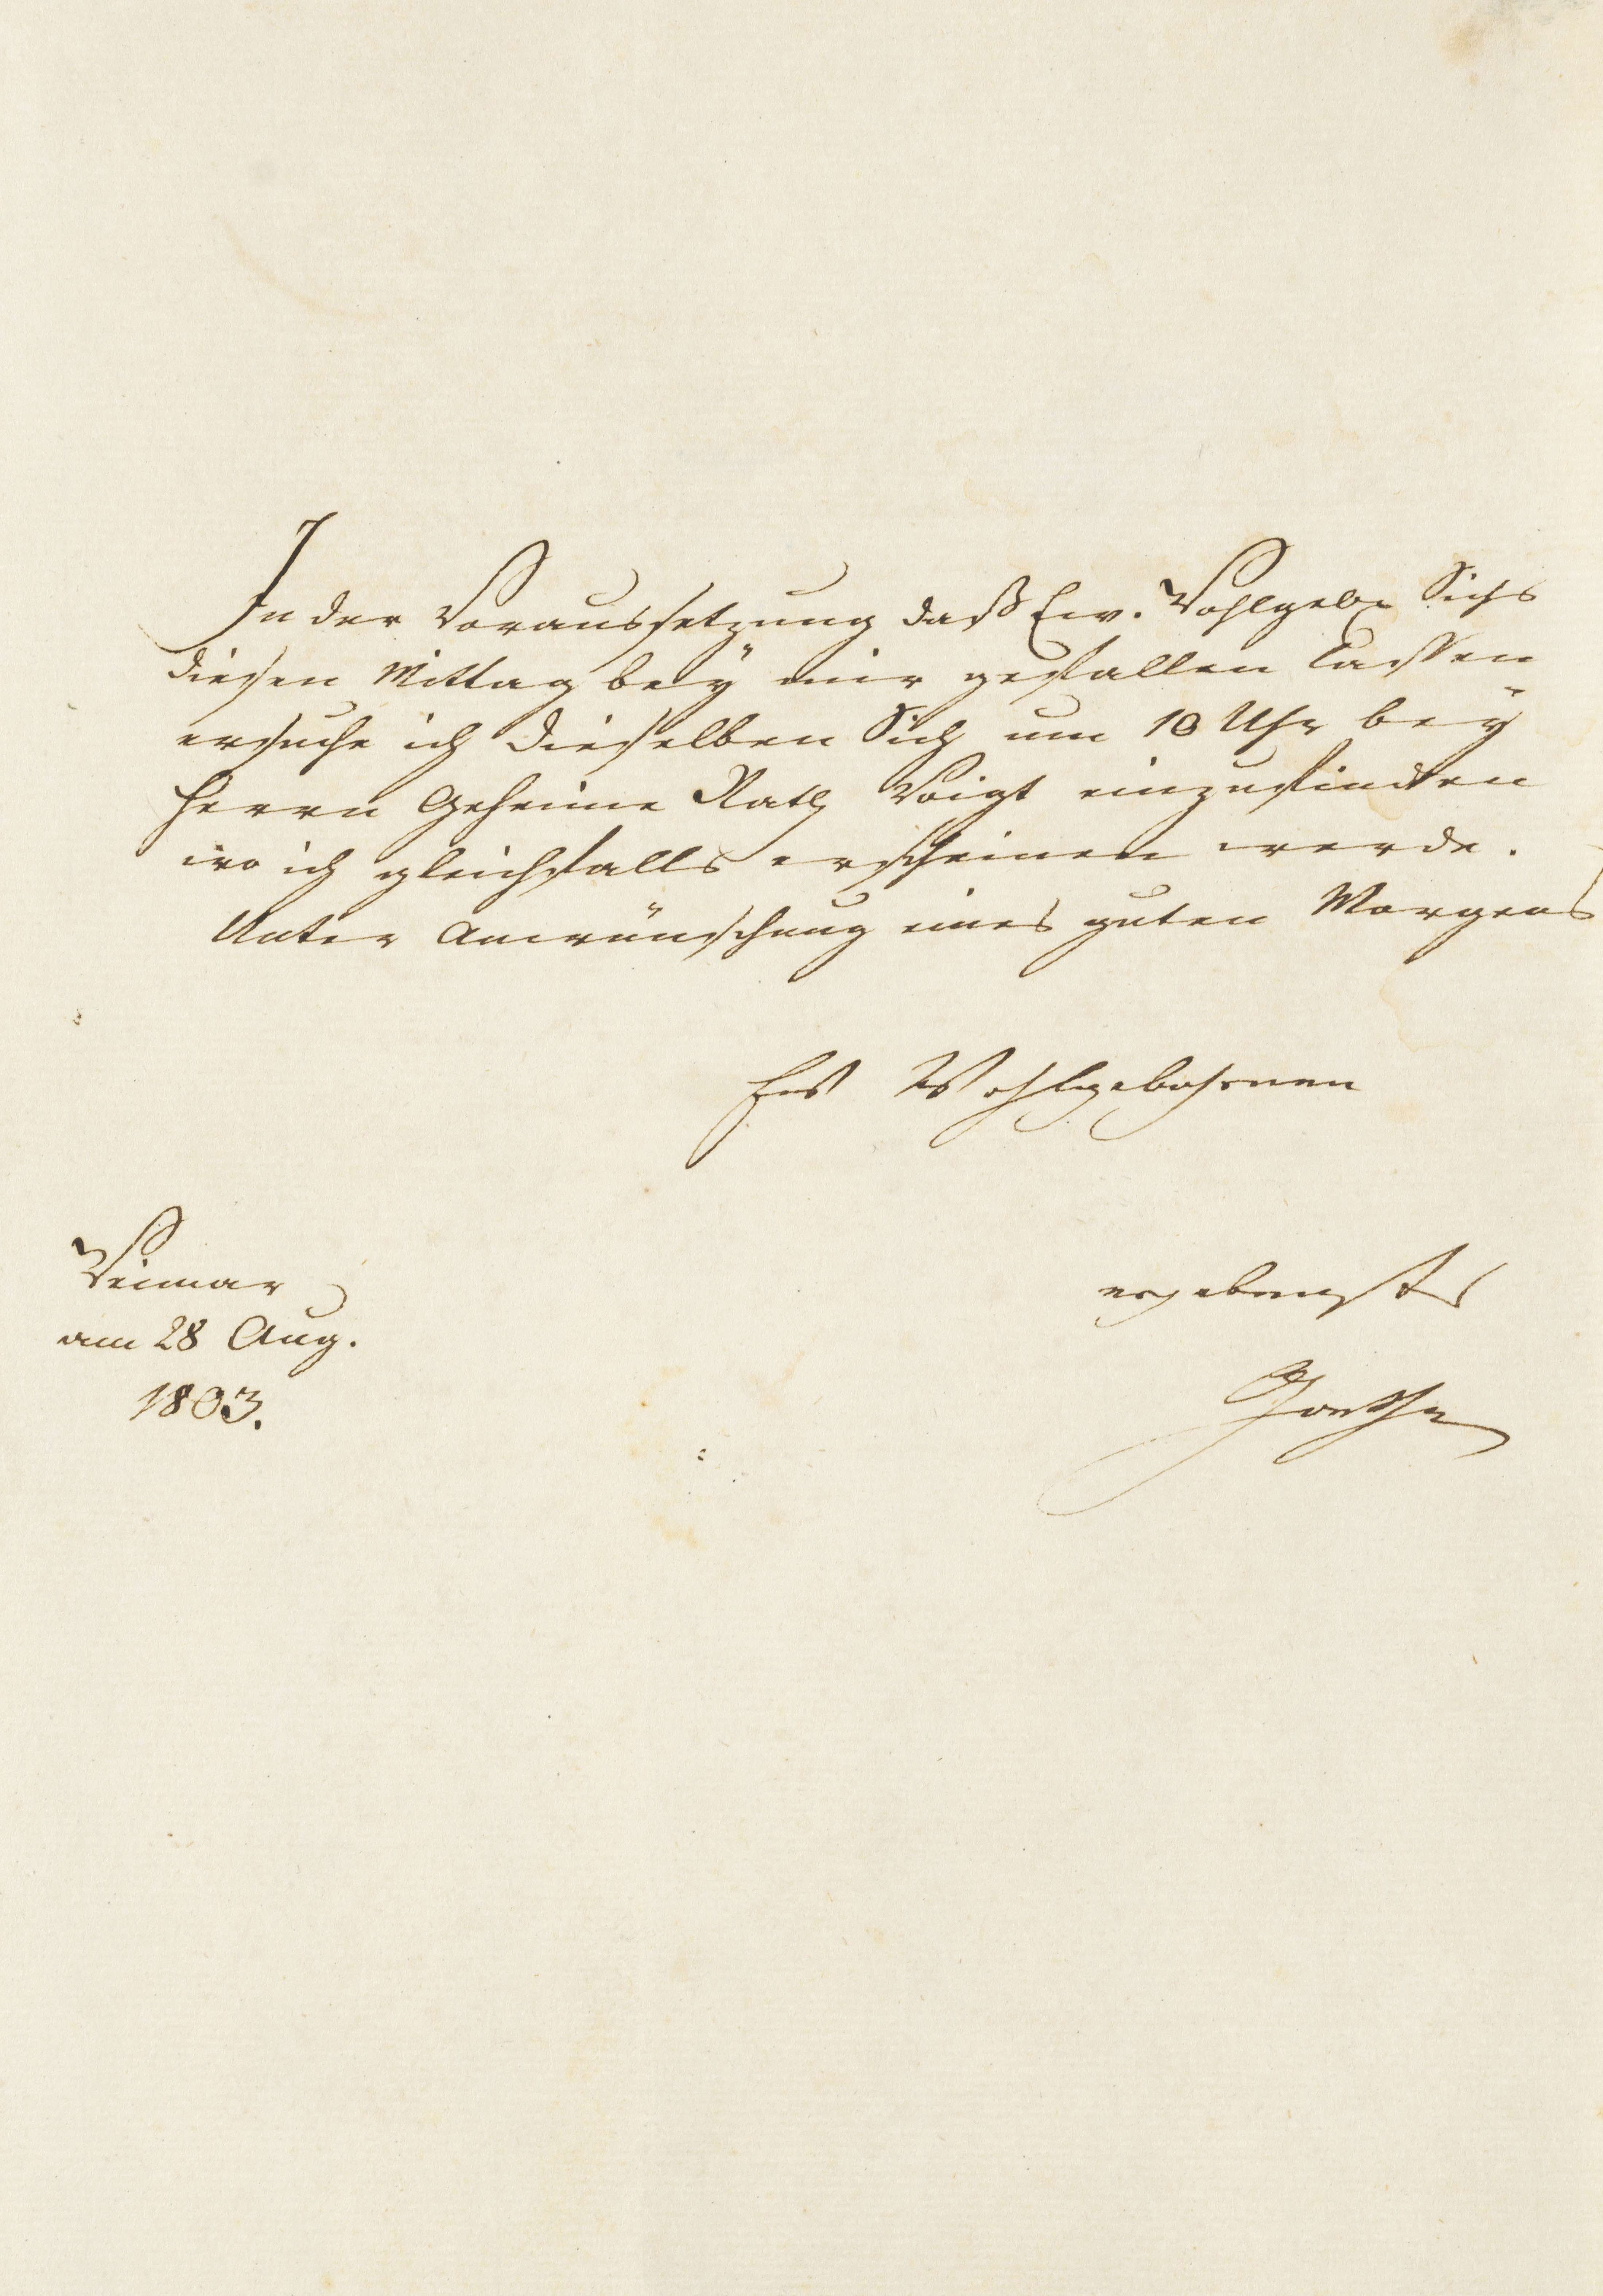 In der Voraussetzung daß Ew. Wohlgeb. Sichs
diesen Mittag bey mir gefallen lassen
ersuche ich Dieselben Sich um 10 Uhr bey
Herrn Geheime Rath Voigt einzufinden
wo ich gleichfalls erscheinen werde.
Unter Anwünschung eines guten Morgens
Ew Wohlgebohrnen
Weimar
am 28 Aug.
1803.
ergebenster
Goethe